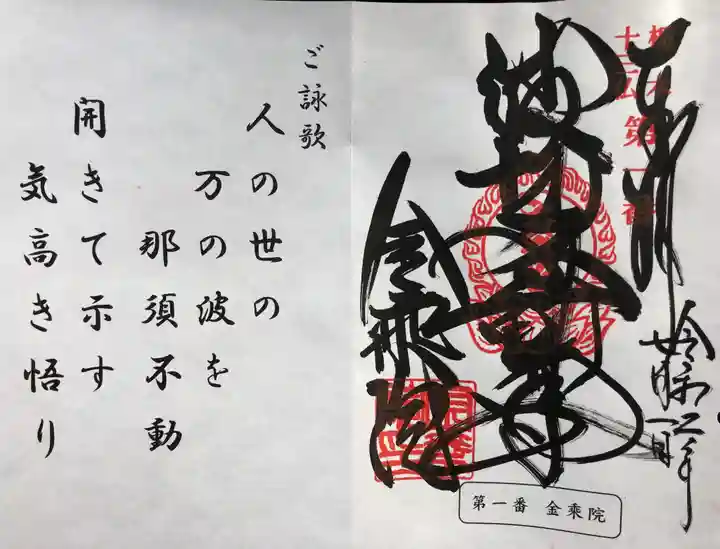 奉拝
栃木
十三仏 第一番
令和二年
金乗院
第一番 金乗院
ご詠歌
人の世の
万の波を
那須不動
開きて示す
気高き悟り